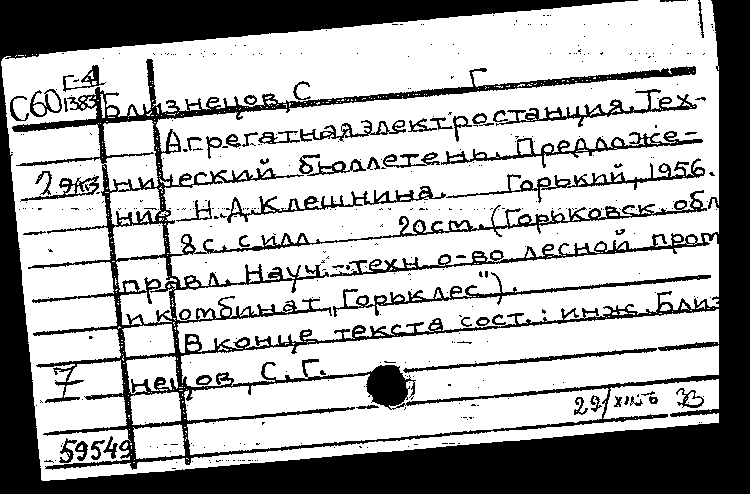 Г-4
С60 1383 Близнецов, С Г
Агрегатная электростанция. Тех-
2 экз нический бюллетень. Предложе-
ние Н.Д. Клешнина. Горький, 1956.
8 с. с илл. 20 см. (Горьковск. обл
правл. Науч.-техн о-во лесной пром
и комбинат „Горьклес").
В конце текста сост.: инж. Близ
7 нецов, С.Г.
29/XII 56
59549